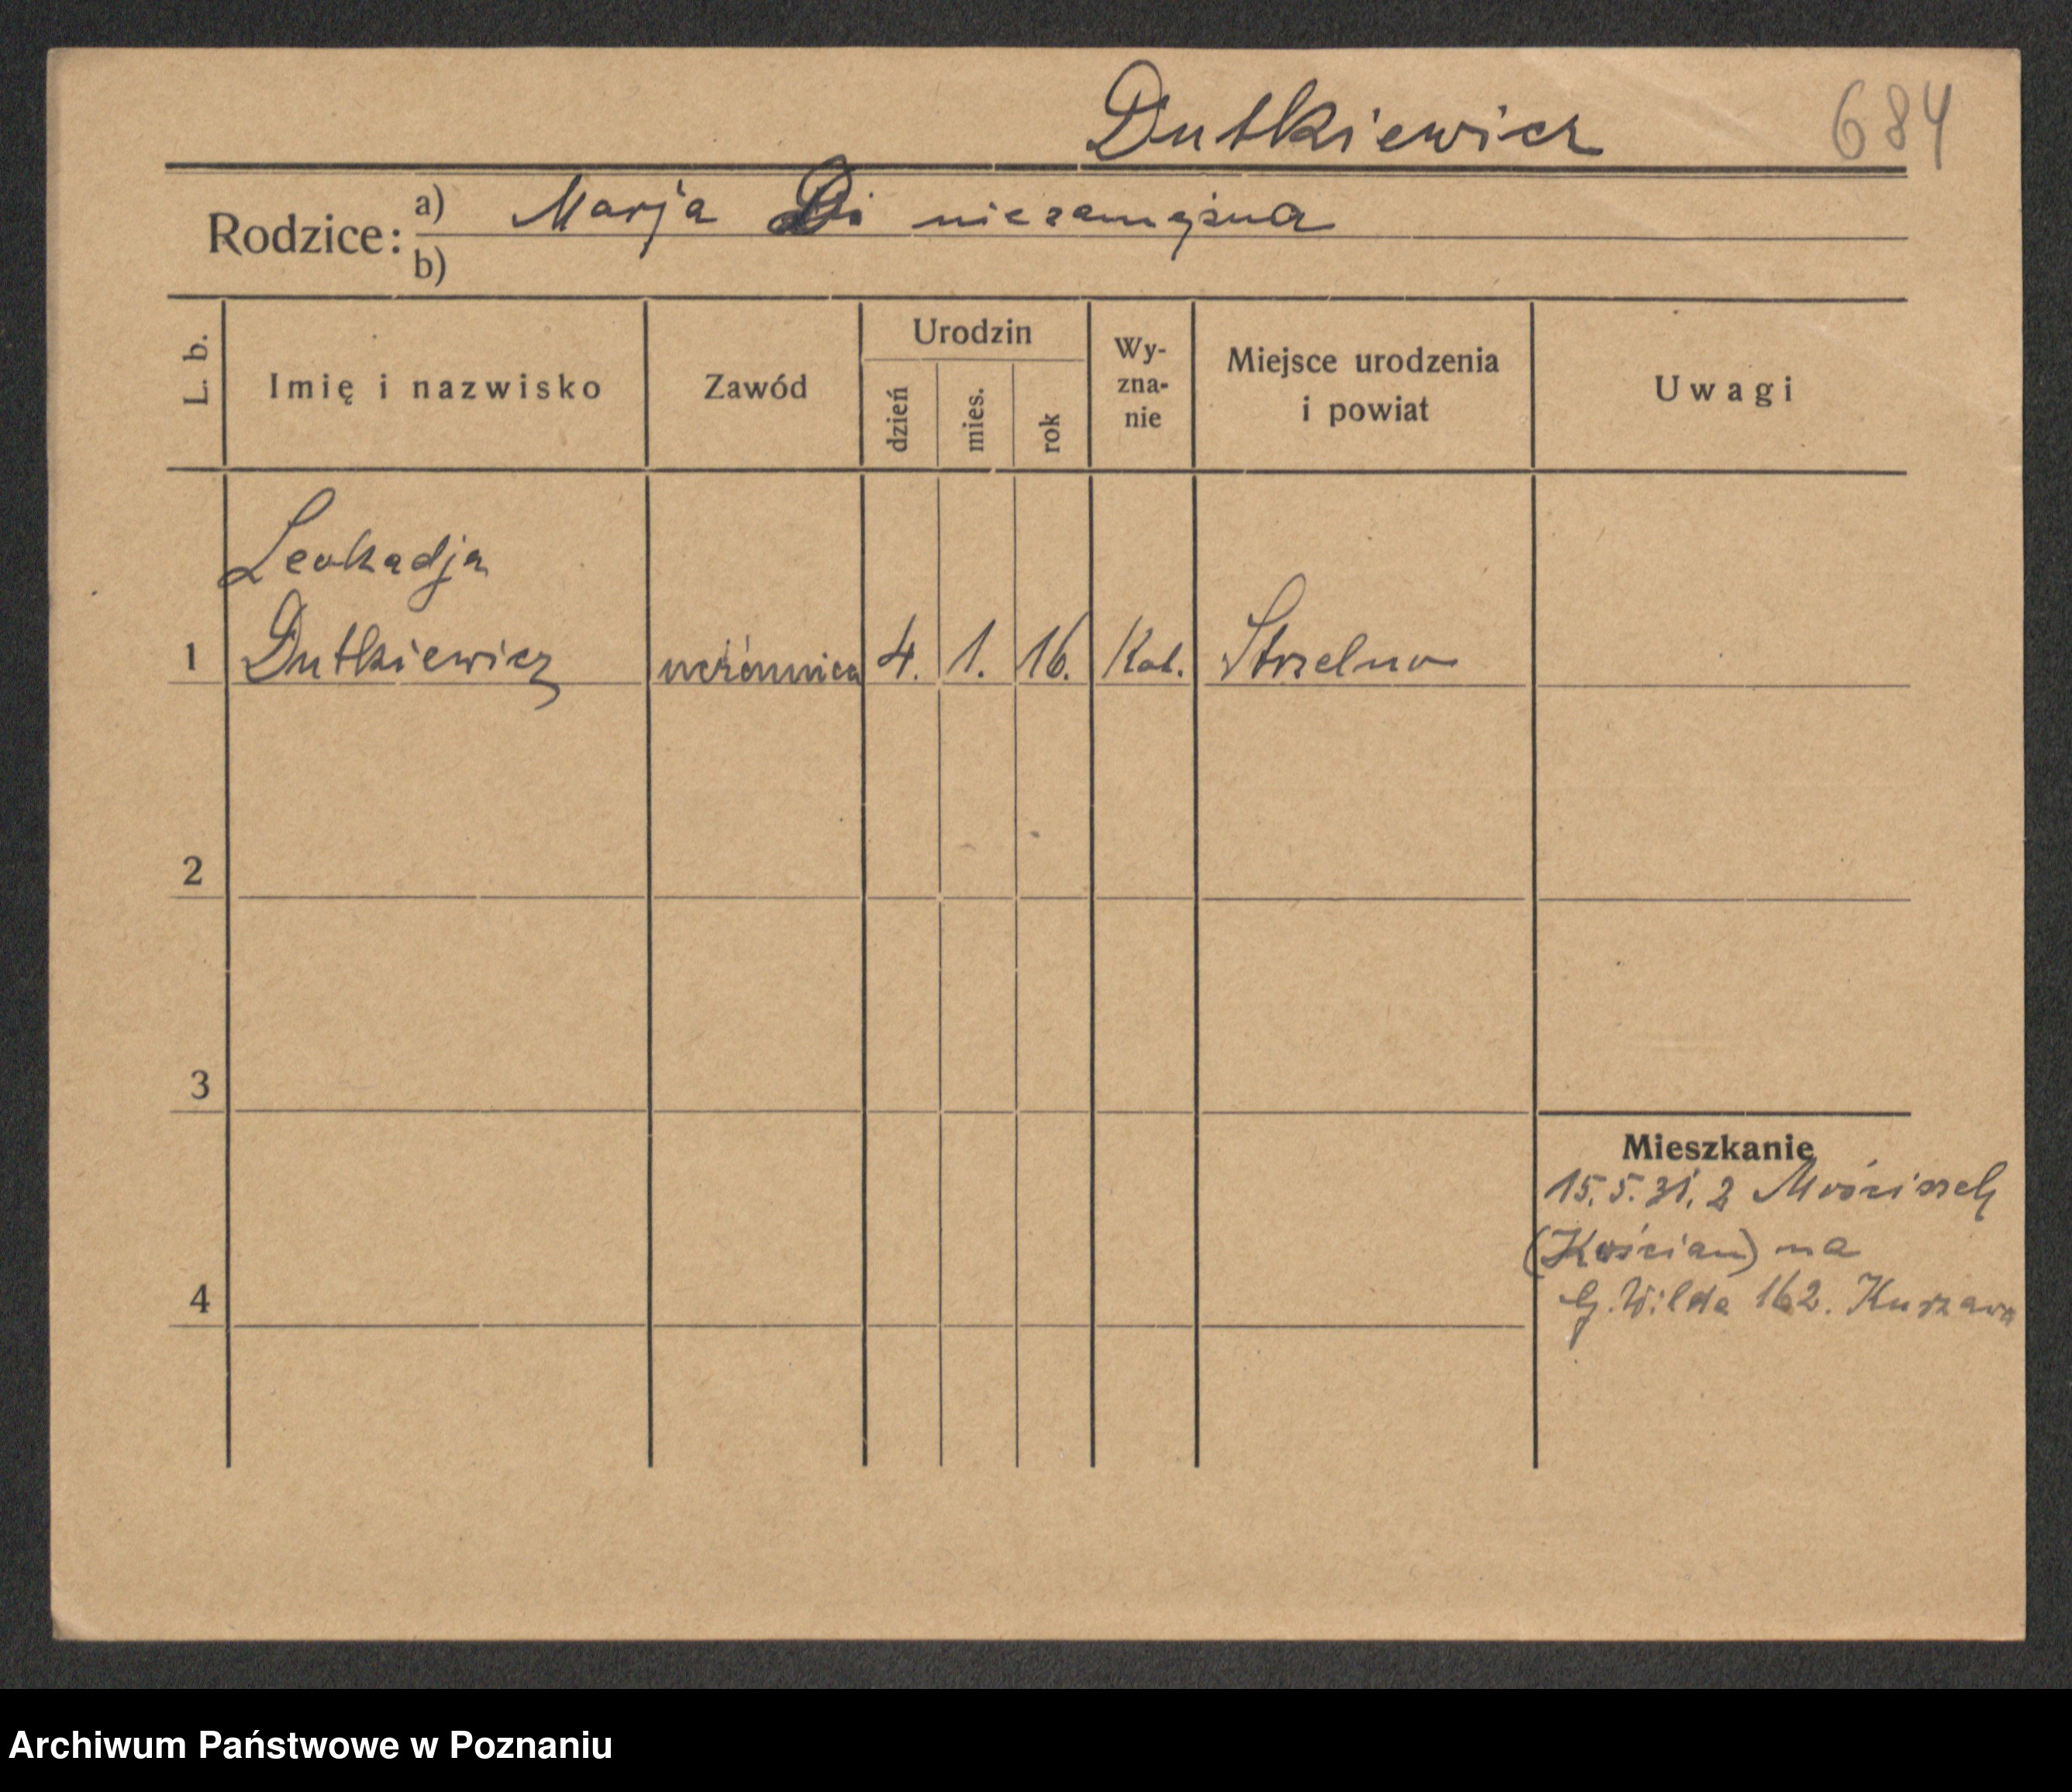 Dutkiewicz 684
Rodzice: a) Marja niezamężna
b)
L. b. Imię i nazwisko Zawód Urodzin dzień mies. rok Wy-zna-nie Miejsce urodzenia i powiat Uwagi
Leokadja
1 Dutkiewicz uczennica 4. 1. 16. Kat. Strzelno
2
3
Mieszkanie
15.5.31. z
(Kościan) na
4 G. Wilda 162. Kurzawa
Archiwum Państwowe w Poznaniu